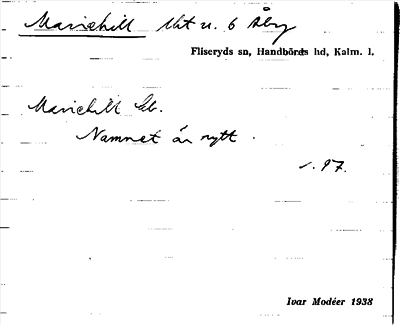 Mariehill lht u. 6 Åby
Fliseryds sn, Handbörds hd, Kalm. l.
Mariehill lht.
Namnet är nytt.
s. 97.
Ivar Modéer 1938